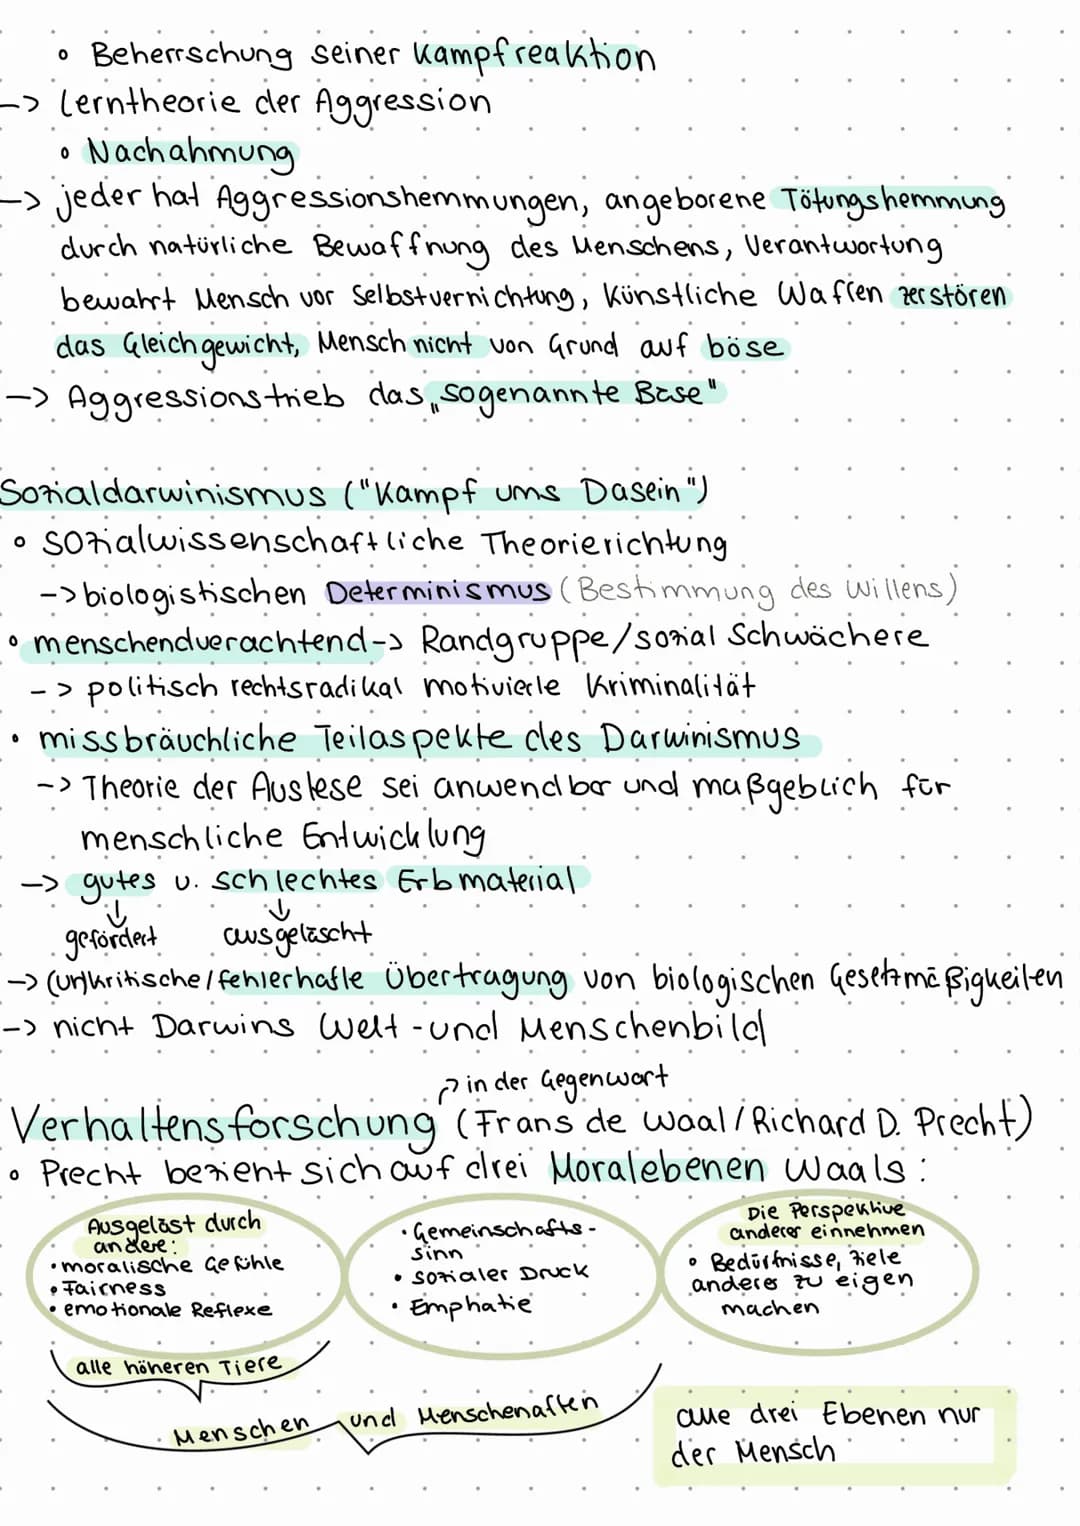 ∘ Beherrschung seiner Kampfreaktion
-> Lerntheorie der Aggression
∘ Nachahmung
-> jeder hat Aggressionshemmungen, angeborene Tötungshemmung
durch natürliche Bewaffnung des Menschens, Verantwortung
bewahrt Mensch vor Selbstvernichtung, Künstliche Waffen zerstören
das Gleichgewicht, Mensch nicht von Grund auf böse
-> Aggressionstrieb das „sogenannte Böse"
Sozialdarwinismus ("Kampf ums Dasein")
∘ sozialwissenschaftliche Theorierichtung
-> biologistischen Determinismus (Bestimmung des Willens)
• menschenverachtend -> Randgruppe/sozial Schwächere
-> politisch rechtsradikal motivierte Kriminalität
• missbräuchliche Teilaspekte des Darwinismus
-> Theorie der Auslese sei anwendbar und maßgeblich für
menschliche Entwicklung
-> gutes u. schlechtes Erbmaterial
↓ ↓
gefördert ausgelöscht
-> (un)kritische/fehlerhafte Übertragung von biologischen Gesetzmäßigkeiten
-> nicht Darwins Welt-und Menschenbild
↗ in der Gegenwart
Verhaltensforschung (Frans de Waal/Richard D. Precht)
∘ Precht bezient sich auf drei Moralebenen Waals:
Ausgelöst durch
andere:
• moralische Gefühle
• Fairness
• emotionale Reflexe
• Gemeinschafts-
sinn
• sozialer Druck
• Emphatie
Die Perspektive
anderer einnehmen
∘ Bedürfnisse, Ziele
anderes zu eigen
machen
alle höheren Tiere
Menschen und Menschenaffen
alle drei Ebenen nur
der Mensch